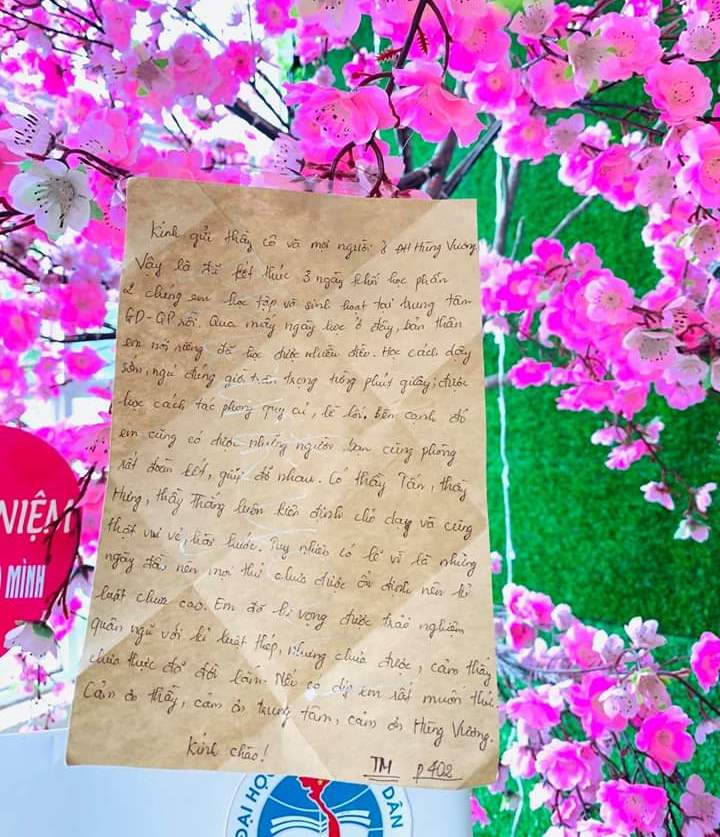 Kính gửi thầy cô và mọi người ở ĐH Hùng Vương
Vậy là đã kết thúc 3 ngày khối học phần
2 chúng em học tập và sinh hoạt tại trung tâm
GD-QP rồi. Qua mấy ngày học ở đây, bản thân
em nói riêng đã học được nhiều điều. Học cách dậy
sớm, ngủ đúng giờ, trân trọng từng phút giây; được
học cách tác phong quy củ, lề lối, bên cạnh đó
em cũng có được những người bạn cùng phòng
rất đoàn kết, giúp đỡ nhau. Có thầy Tân, thầy
Hưng, thầy Thắng luôn kiên định chỉ dạy và cũng
thật vui vẻ, hài hước. Tuy nhiên có lẽ vì là những
ngày đầu nên mọi thứ chưa được ổn định nên kỉ
luật chưa cao. Em đã hi vọng được trải nghiệm
quân ngũ với kỉ luật thép, nhưng chưa được, cảm thấy
chưa thực đã đời lắm. Nếu có dịp em rất muốn thử.
Cảm ơn thầy, cảm ơn trung tâm, cảm ơn Hùng Vương.
Kính chào!
TM p402
NIỆM
MINH
ĐẠI HỌC
DÂN